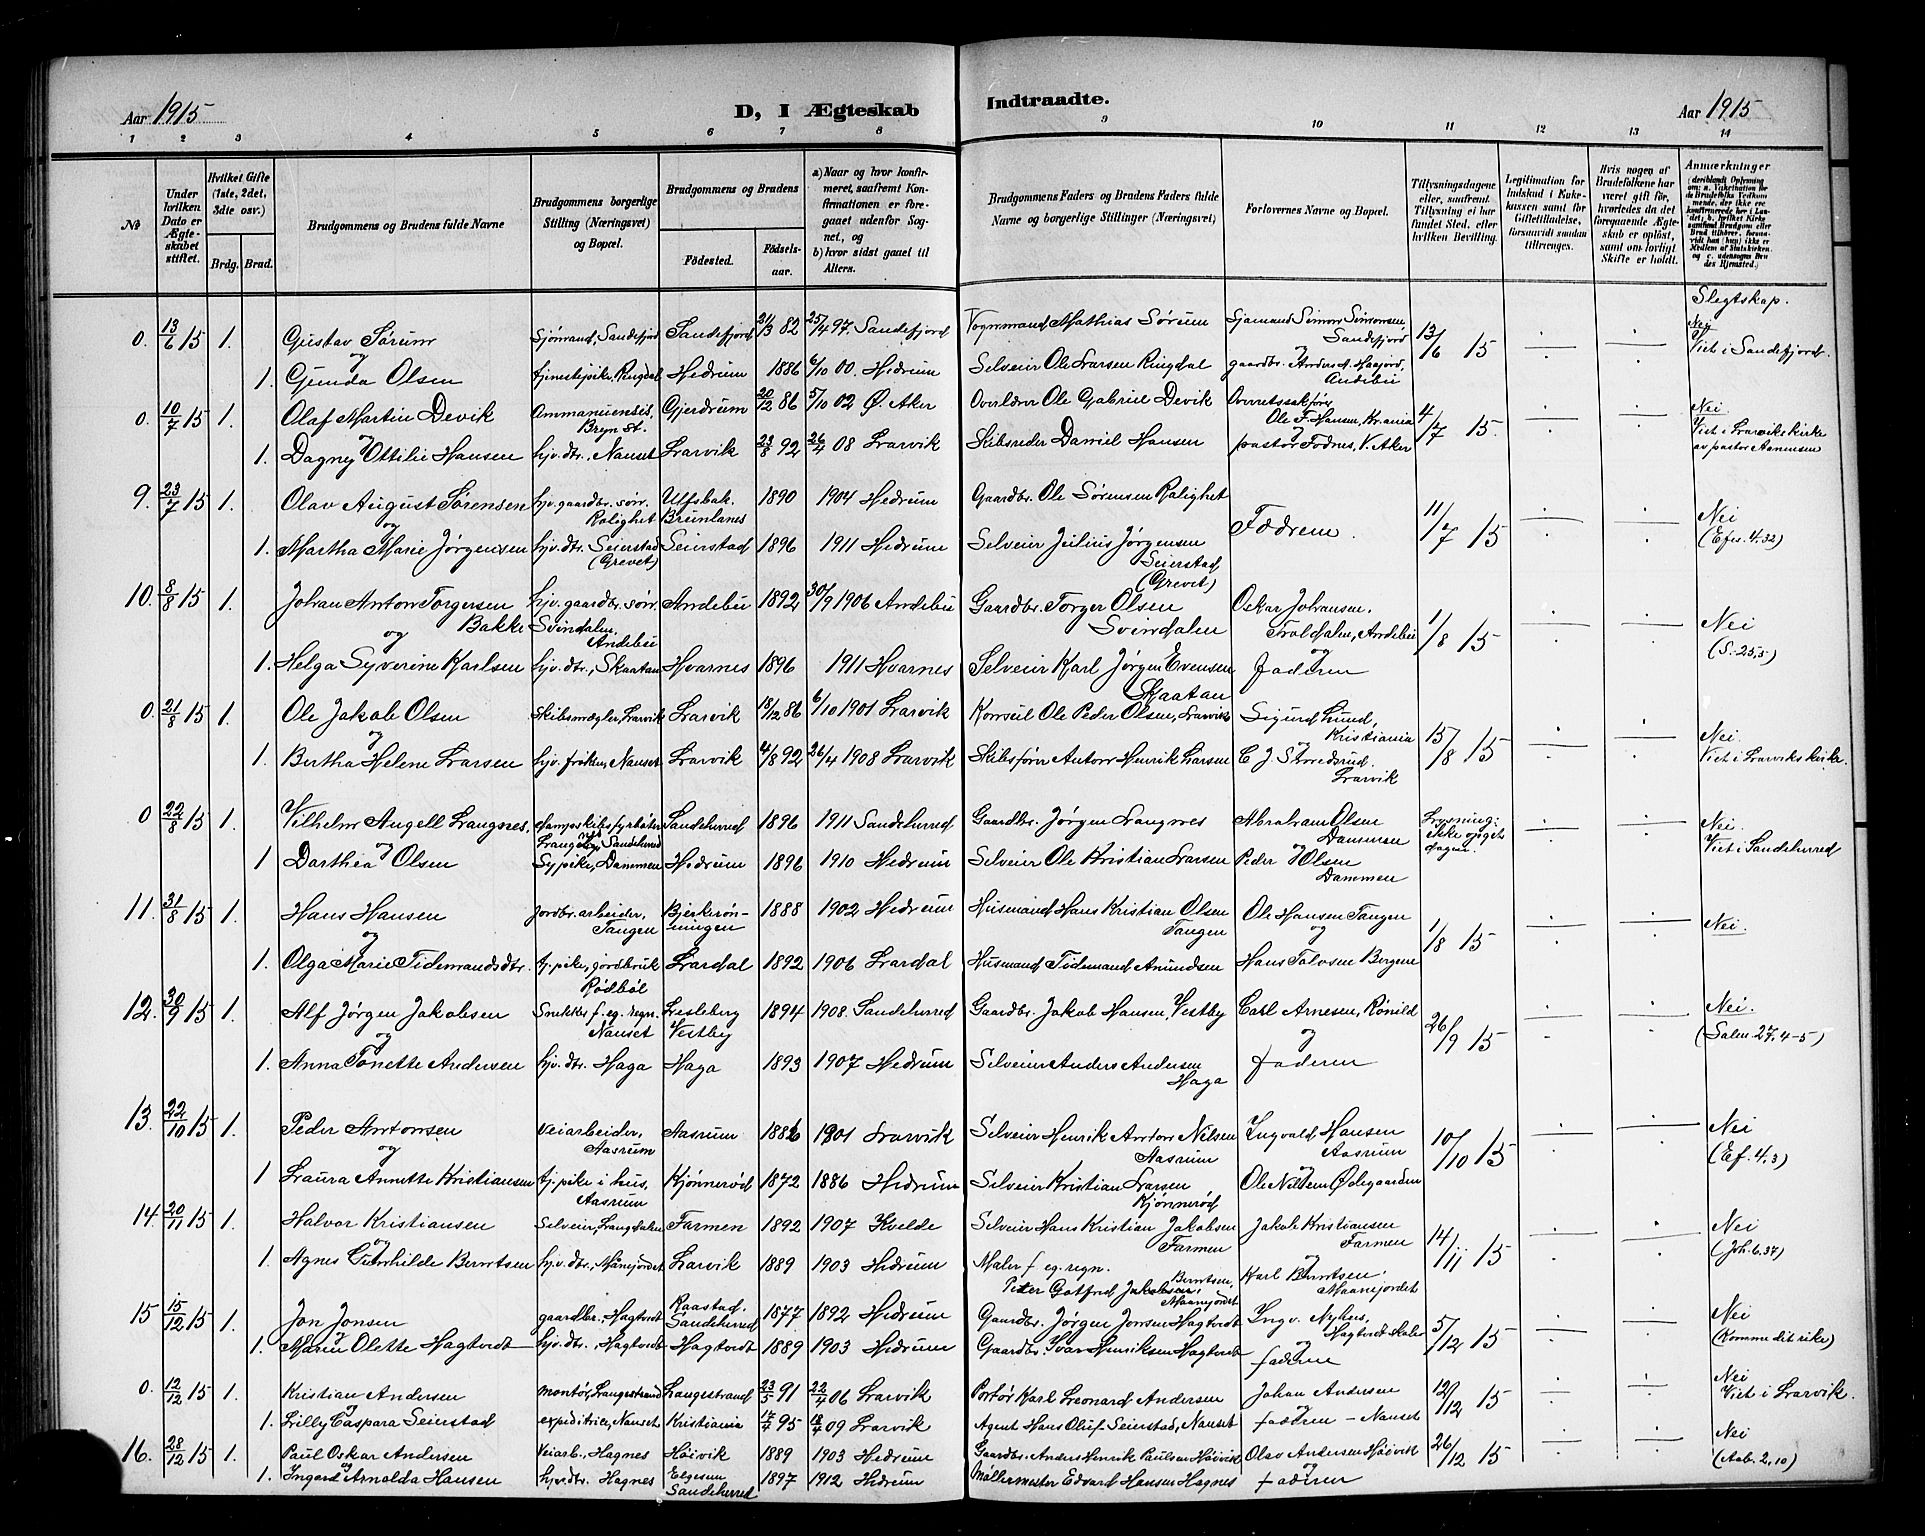 Aar 1915
D, I Ægteskab Indtraadte.
Aar 1915
1 2 3 4 5 6 7 8 9 10 11 12 13 14
No
Under hvilken Dato er Ægteskabet stiftet.
Hvilket Gifte (1ste, 2det, 3dte osv.)
Brdg. Brud.
Brudgommens og Brudens fulde Navne
Brudgommens borgerlige Stilling (Næringsvei) og Bopæl.
Brudgommens og Brudens
Fødested.
Fødselsaar.
a) Naar og hvor konfirmeret, saafremt Konfirmationen er foregaaet udenfor Sognet, og
b) hvor sidst gaaet til Alters.
Brudgommens Faders og Brudens Faders fulde Navne og borgerlige Stillinger (Næringsvei)
Forlovernes Navne og Bopæl.
Tillysningsdagene eller, saafremt Tillysning ei har fundet Sted, efter hvilken Bevilling.
Legitimation for Indskud i Enkekassen samt for Giftetilladelse, forsaavidt saadan tiltrænges.
Hvis nogen af Brudefolkene har været gift før, hvorledes da det foregaaende Ægteskab er opløst, samt om lovligt Skifte er holdt.
Anmærkninger
Slegtskap.
0. 13/6 15 1. Gustav Sørum Sjömand, Sandefjord Sandefjord 21/3 82 25/4 97. Sandefjord Vognmand Mathias Sørum Sjømand Simon Simonsen, Sandefjord 13/6 15 Nei Viet i Sandefjord.
og
1. Gunda Olsen tjenestepike, Ringdal Hedrum 1886 6/10 00. Hedrum Selveier Ole Larsen Ringdal gaardbr. Anders A. Haajord, Andebu
0. 10/7 15 1. Olaf Martin Devik Ammanuensis, Bryn st. Gjerdrum 20/12 86 5/10 02 Ø. Aker Overlærer Ole Gabriel Devik Overretssakfører Ole F. Hansen, Kr.ania 4/7 15. Nei. Viet i Larviks kirke av pastor Aanensen
og
1. Dagny Ottilie Hansen hjv. dtr., Nanset Larvik 23/8 92 26/4 08 Larvik Skibsreder Daniel Hansen pastor Fodnes, V. Aker
9. 23/7 15 1. Olav August Sørensen hjv. gaardbr. søn, Rolighet Ulfsbak, Brunlanes 1890 1904 Hedrum Gaardbr. Ole Sørensen Rolighet Fædrene. 11/7 15 Nei (Efes. 4, 32)
og
1. Martha Marie Jørgensen hjv. dtr. Seierstad (Grevet) Seierstad 1896 1911 Hedrum Selveier Julius Jørgensen Seierstad (Grevet)
10. 8/8 15 1. Johan Anton Torgersen Bakke hjv. gaardbr. søn, Svindalen, Andebu Andebu 1892 30/9 1906 Andebu Gaardbr. Torger Olsen Svindalen Oskar Johansen, Troldalen, Andebu 1/8 15 Nei (S. 25,5)
og
1. Helga Syverine Karlsen hjv. dtr., Skaatan Hvarnes 1896 1911 Hvarnes Selveier Karl Jørgen Evensen Skaatan og faderen
0. 21/8 15 1. Ole Jakob Olsen Skibsmægler, Larvik Larvik 18/12 86 6/10 1901 Larvik Konsul Ole Peder Olsen, Larvik Sigurd Lund, Kristiania 15/8 15 Nei. Viet i Larviks kirke.
og
1. Bertha Helene Larsen hjv. frøken, Nanset Larvik 4/8 92 26/4 1908 Larvik Skibsfører Anton Henrik Larsen C. J. Skredsrud. Larvik
0 22/8 15 1. Vilhelm Angell Langnes, dampskibsfyrbøter Sandeherred 1896 1911 Sandeherred Gaardbr. Jørgen Langnes Abraham Olsen Dammen Lysning: ikke opgit dagen. Nei. Viet i Sandeherred
og
1 Darthea Olsen Sypike, Dammen Hedrum 1896 1910 Hedrum Selveier Ole Kristian Larsen Peder Olsen Dammen
11. 31/8 15 1. Hans Hansen Jordbr. arbeider, Tangen Bjerkerønningen 1888 1902 Hedrum Husmand Hans Kristian Olsen Tangen Ole Hansen Tangen 1/8 15 Nei.
og
1. Olga Marie Tidemandsdtr. tj. pike, jordbruk Rödböl Lardal 1892 1906 Lardal Husmand Tidemand Amundsen og Hans Tolvsen Bergene
12. 30/9 15 1. Alf Jørgen Jakobsen Snekker f. eg. regn. Nanset Lesleberg Vestby 1894 1908 Sandeherred Gaardbr. Jakob Hansen, Vestby Carl Arnesen, Rönild 26/9 15 Nei. (Salm. 27, 4-5)
og
1. Anna Tonette Andersen hjv. dtr. Haga Haga 1893 1907 Hedrum Selveier Anders Andersen Haga og faderen
13. 22/10 15 1. Peder Antonsen Veiarbeider, Aasrum Aasrum 1882 1901 Larvik Selveier Henrik Anton Nilsen Aasrum Yngvald Hansen Aasrum 10/10 15 Nei (Ef. 4,3)
og
1 Laura Annette Kristiansen tj. pike i hus, Aasrum Kjønnerød 1872 1886 Hedrum Selveier Kristian Larsen Kjønnerød Ole Nilsen Ødegaarden
14. 20/11 15 1. Halvor Kristiansen Selveier, Langdalen Farmen 1892 1907 Kvelde Selveier Hans Kristian Jakobsen Farmen Jakob Kristiansen Farmen 14/11 15 Nei (Joh. 6.37)
og
1. Agnes Gunhilde Berntsen hjv. dtr., Månejordet Larvik 1889 1903 Hedrum Maler f. eg. regn. Peter Gotfred Jakobsen Berntsen, Maanejordet og Karl Berntsen. Maanejordet
15 15/12 15 1. Jon Jonsen gaardbr., Hagtvedt Raastad, Sandeherred 1877 1892 Hedrum Gaardbr. Jørgen Jonsen Hagtvedt Yngv. Myhres, Hagtvedt skole 5/12 15 Nei (Komme dit rike)
og
1. Marie Olette Hagtvedt hjv. dtr., Hagtvedt Hagtvedt 1889 1903 Hedrum Gaardbr. Ivar Henriksen Hagtvedt og faderen
0. 12/12 15 1. Kristian Andersen montør, Langestrand Langestrand 23/5 91 22/4 06 Larvik Portør Karl Leonard Andersen Johan Andersen 12/12 15 Nei Viet i Larvik.
1. Lilly Caspara Seierstad expeditrice, Nanset Kristiania 17/7 95 18/4 09 Larvik Agent Hans Oluf Seierstad, Nanset faderen – Nanset
16. 28/12 15 1. Paul Oskar Andersen Veiarb., Hagnes Höivik 1889 1903 Hedrum Gaardbr. Anders Henrik Paulsen Høivik Olav Andersen Höivik 26/12 15 Nei (Aab. 2, 10)
og
1. Ingard Arnolda Hansen hjv. dtr. Hagnes Elgesem Sandeherred 1897 1912 Hedrum Møllermester Edvard Hansen Hagnes og faderen